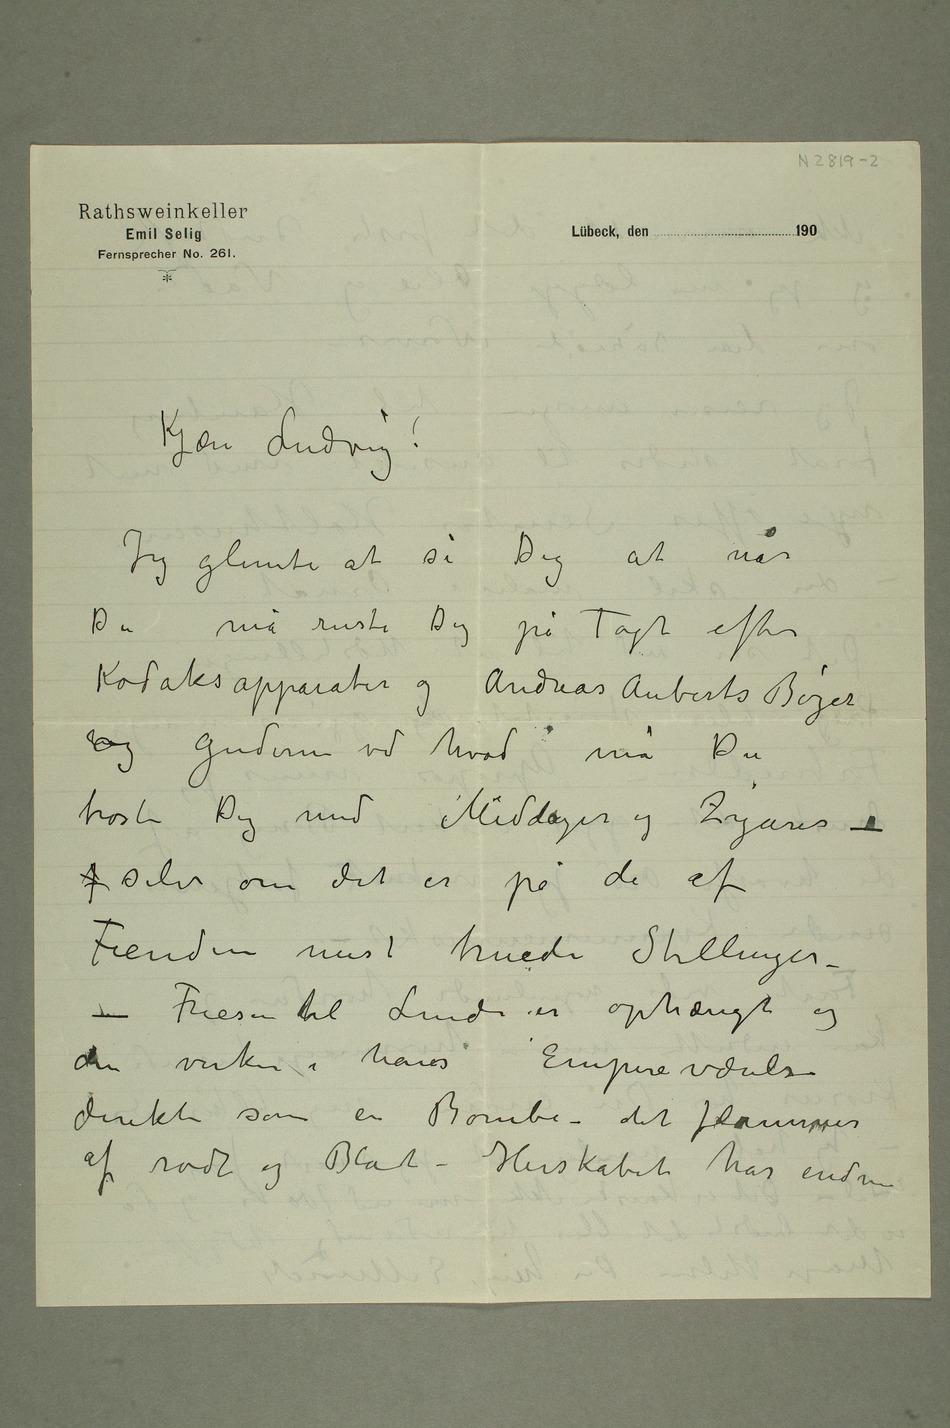 N 2819-2
Rathsweinkeller
Emil Selig
Fernsprecher No. 261.
Lübeck, den 190
Kjære Ludvig!
Jeg glemte at si Dig at når
Du må ruste Dig på Togt efter
Kodaksapparater og Andreas Auberts Bøger
og Guderne ved hvad må Du
trøste Dig med Middager og Zigarer –
selv om det er på de af
Fienden mest truede Stillinger –
– Friesen til Linde er ophængt og
den virker i hans Empireværelse
direkte som en Bombe – det flammer
af rødt og Blåt – Herskabet har endnu